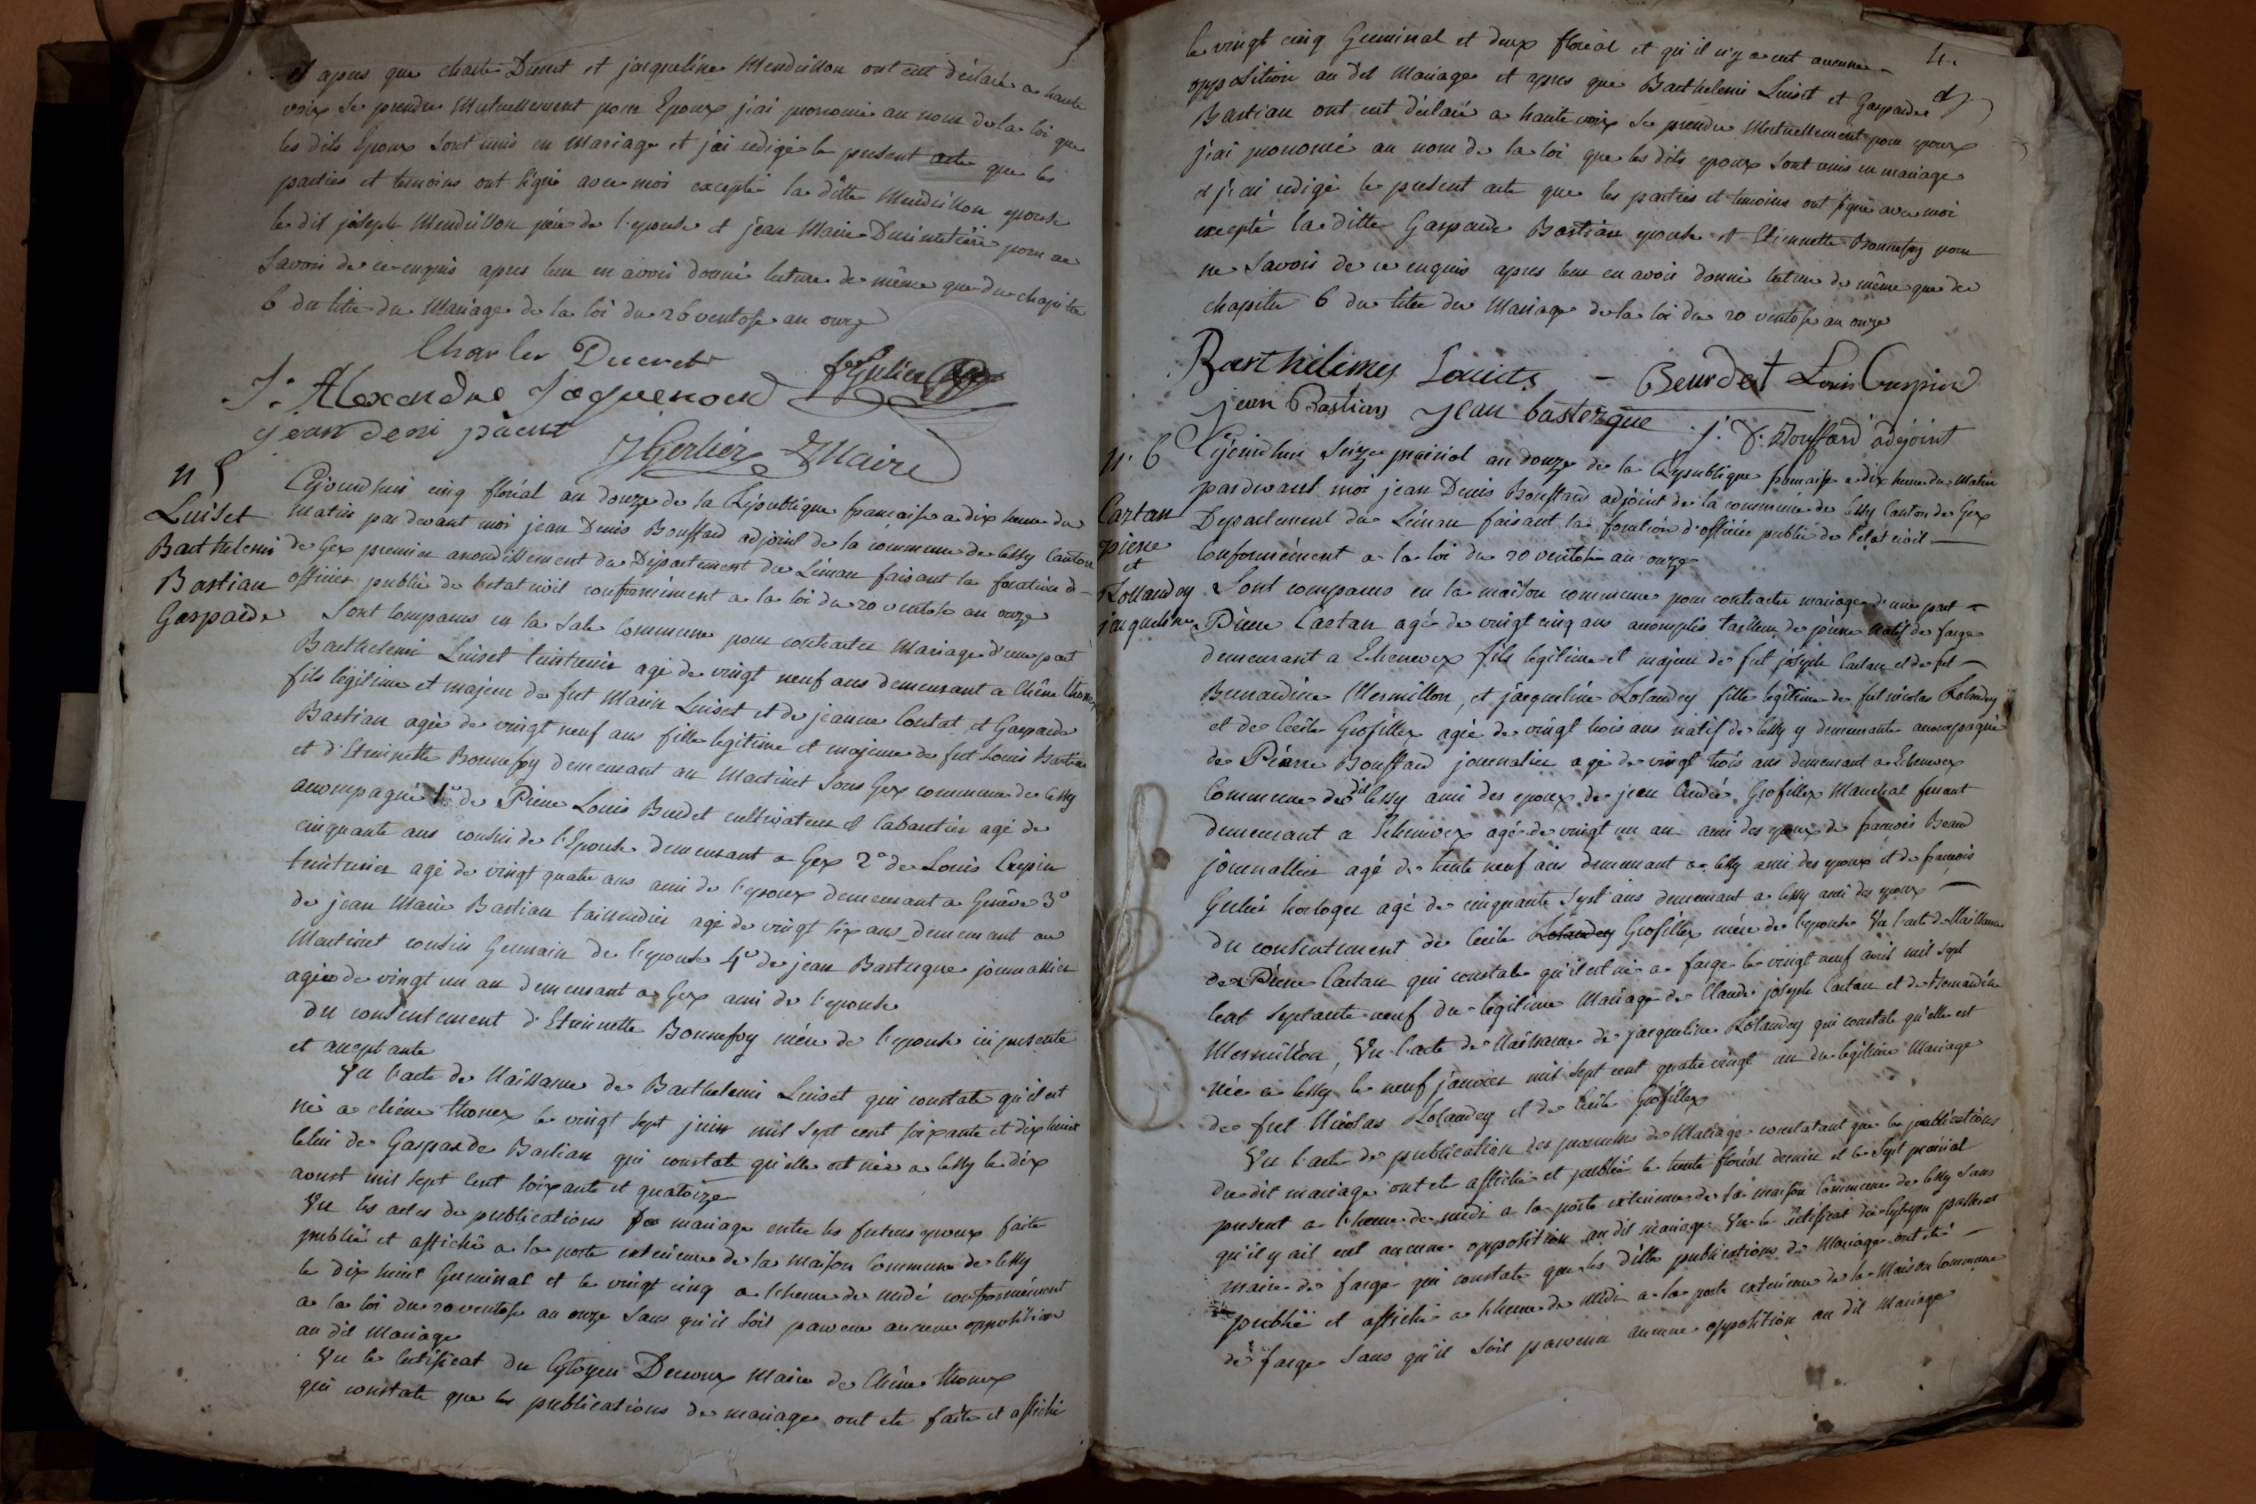 et apres que charle Ducret et jacqueline Mendrillon ont eut déclaré a haute
voix se prendre Mutuellement pour Epoux j'ai prononcé au nom de la loi que
les dits Epoux sont unis en Mariage et j'ai redigé le present acte que les
parties et temoins ont signé avec moi excepté la ditte Mendrillon epouse
le dit joseph Mendrillon père de l'epouse et jean Marie pour ne
Savoir de ce enquis apres leur en avoir donné lecture de même que du chapitre
6 du titre du Mariage de la loi du 26 ventose an onze
Charles Ducret
J: Alexandre Jaquenoud Gulier
jean deni
JGerlier Maire
n 5
Luiset
Barthelemi
Bastian
Gasparde
Cejourdhui cinq floréal an douze de la République française a dix heure du
Matin par devant moi jean Denis Bouffard adjoint de la commune de Cessy Canton
de Gex premier arrondissement du Département du Léman faisant la fonction d-
officier public de letat civil conformément a la loi du 20 ventose an onze
Sont Comparus en la Sale Commune pour contracter Mariage d'une part
Barthelemi Luiset teinturier agé de vingt neuf ans demeurant a Chêne thonex
fils légitime et majeur de fut Marin Luiset et de jeanne Contat, et Gasparde
Bastian agée de vingt neuf ans fille legitime et majeure de fut Louis Bastian
et d'Etiennette Bonnefoy demeurant au Martinet sous Gex commune de Cessy
accompagné 1° de Pierre Louis Burdet cultivateur & Cabaretier agé de
cinquante ans cousin de l'Epouse demeurant a Gex 2° de Louis Crepin
teinturier agé de vingt quatre ans ami de l'epoux demeurant a Genève 3°
de jean Marie Bastian taillandier agé de vingt six ans demeurant au
Martinet cousin Germain de l'epouse 4° de jean Basterque journallier
agée de vingt un an demeurant a Gex ami de l'epouse
du consentement d'Etiennette Bonnefoy mère de l'epouse ici presente
et acceptante
Vu l'acte de Naissance de Barthelemi Luiset qui constate qu'il est
né a chêne thonex le vingt sept juin mil sept cent soixante et dix huit
Celui de Gasparde Bastian qui constate qu'elle est née a Cessy le dix
aoust mil sept cent soixante et quatorze
Vu les actes de publications de mariage entre les futurs epoux faite
publié et affiché a la porte exterieure de la maison Commune de Cessy
le dix huit Germinal et le vingt cinq a lheure de midi conformément
a la loi du 20 ventose an onze Sans qu'il soit parvenu aucune opposition
au dit Mariage
Vu le Certificat du Cytoyen Maire de Chêne thonex
qui constate que les publications de mariage ont ete faite et affiché
4.
le vingt cinq Germinal et deux floréal et qu'il n'y a eut aucunne
opposition au dit Mariage et apres que Barthelemi Luiset et Gasparde
Bastian ont eut déclaré a haute voix se prendre Mutuellement pour epoux
j'ai prononcé au nom de la loi que les dits epoux sont unis en mariage
et j'ai redigé le present acte que les parties et temoins ont signé avec moi
excepté la ditte Gasparde Bastian epouse et Etiennette Bonnefoy pour
ne Savoir de ce enquis apres leur en avoir donné lecture de même que du
chapitre 6 du titre du Mariage de la loi du 20 ventose an onze
Barthelimy Louiset – Beurdet Louis Crespin
jean Bastian jean basterque J. D. Bouffard adjoint
n. 6
Cartan
pierre
et
Rollandey
jacqueline
Cejourdhui Seize prairial an douze de la République française a dix heure du Matin
pardevant moi jean Denis Bouffard adjoint de la commune de Cessy Canton de Gex
Departement du Léman faisant la fonction d'officier public de l'etat civil
Conformément a la loi du 20 ventose an onze
Sont comparus en la maison commune pour contracter mariage d'une part
Pierre Cartan agé de vingt cinq ans accomplis tailleur de pierre Natif de farge
demeurant a Echenevex fils legitime et majeur de fut joseph Cartan et de fut
Bernardine Mermillon, et jacqueline Rolandey fille legitime de fut nicolas Rolandey
et de Cecile Grosfillex agée de vingt trois ans natif de Cessy y demeurante accompagné
de Pierre Bouffard journalier agé de vingt trois ans demeurant a Echenevex
Commune du dit Cessy ami des epoux de jean André Grosfillex Marechal ferrant
demeurant a Echenevex agé de vingt un an ami des epoux de françois Beaud
journallier agé de trente neuf ans demeurant a Cessy ami des epoux et de françois
Gulier horloger agé de cinquante Sept ans demeurant a Cessy ami des epoux
du consentement de Cecile Rolandey Grosfillex mère de l'epouse Vu l'acte de Naissance
de Pierre Cartan qui constate qu'il est né a farge le vingt neuf avril mil sept
Cent Septante neuf du legitime Mariage de Claude joseph Cartan et de Bernardine
Mermillon, Vu l'acte de Naissance de jacqueline Rolandey qui constate qu'elle est
née a Cessy le neuf janvier mil sept cent quatre vingt un du legitime Mariage
de fut Nicolas Rolandey et de Cecile Grosfillex
Vu l'acte de publication des promesses de Mariage constatant que les publications
du dit mariage ont ete affiché et publié le trente floréal dernier et le Sept prairial
present a lheure de midi a la porte exterieure de la maison Commune de Cessy Sans
qu'il y ait eut aucune opposition au dit mariage Vu le Certificat du Cytoyen
maire de farge qui constate que les dittes publications de Mariage ont été
publié et affiché a lheure de midi a la porte exterieure de la Maison Commune
de farge Sans qu'il soit parvenu aucune opposition au dit Mariage